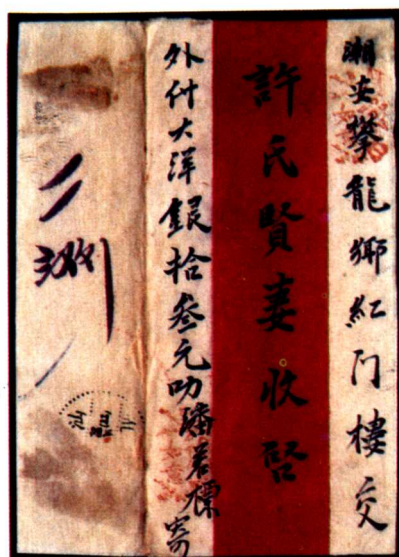 潮安攀龍鄉紅门樓交
許氏賢妻收啓
外付大洋銀拾叁元叻潘若標寄